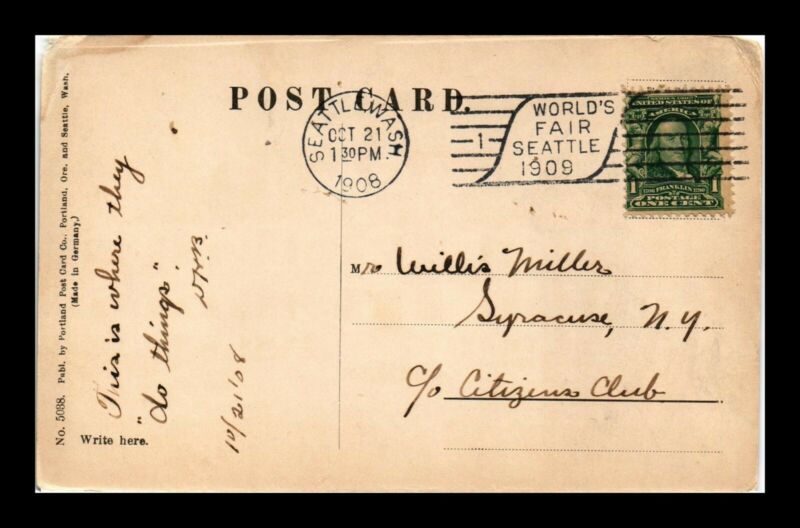 No. 5038. Publ. by Portland Post Card Co., Portland, Ore. and Seattle, Wash.
(Made in Germany.)
POST CARD.
SEATTLE, WASH
OCT 21
130PM
1908
1
WORLD'S
FAIR
SEATTLE
1909
UNITED STATES OF
AMERICA
1 FRANKLIN 1
POSTAGE
ONE CENT
This is where they
"do things".
10/21/08
Write here.
Mr Willis Miller
Syracuse, N.Y.
c/o Citizens Club